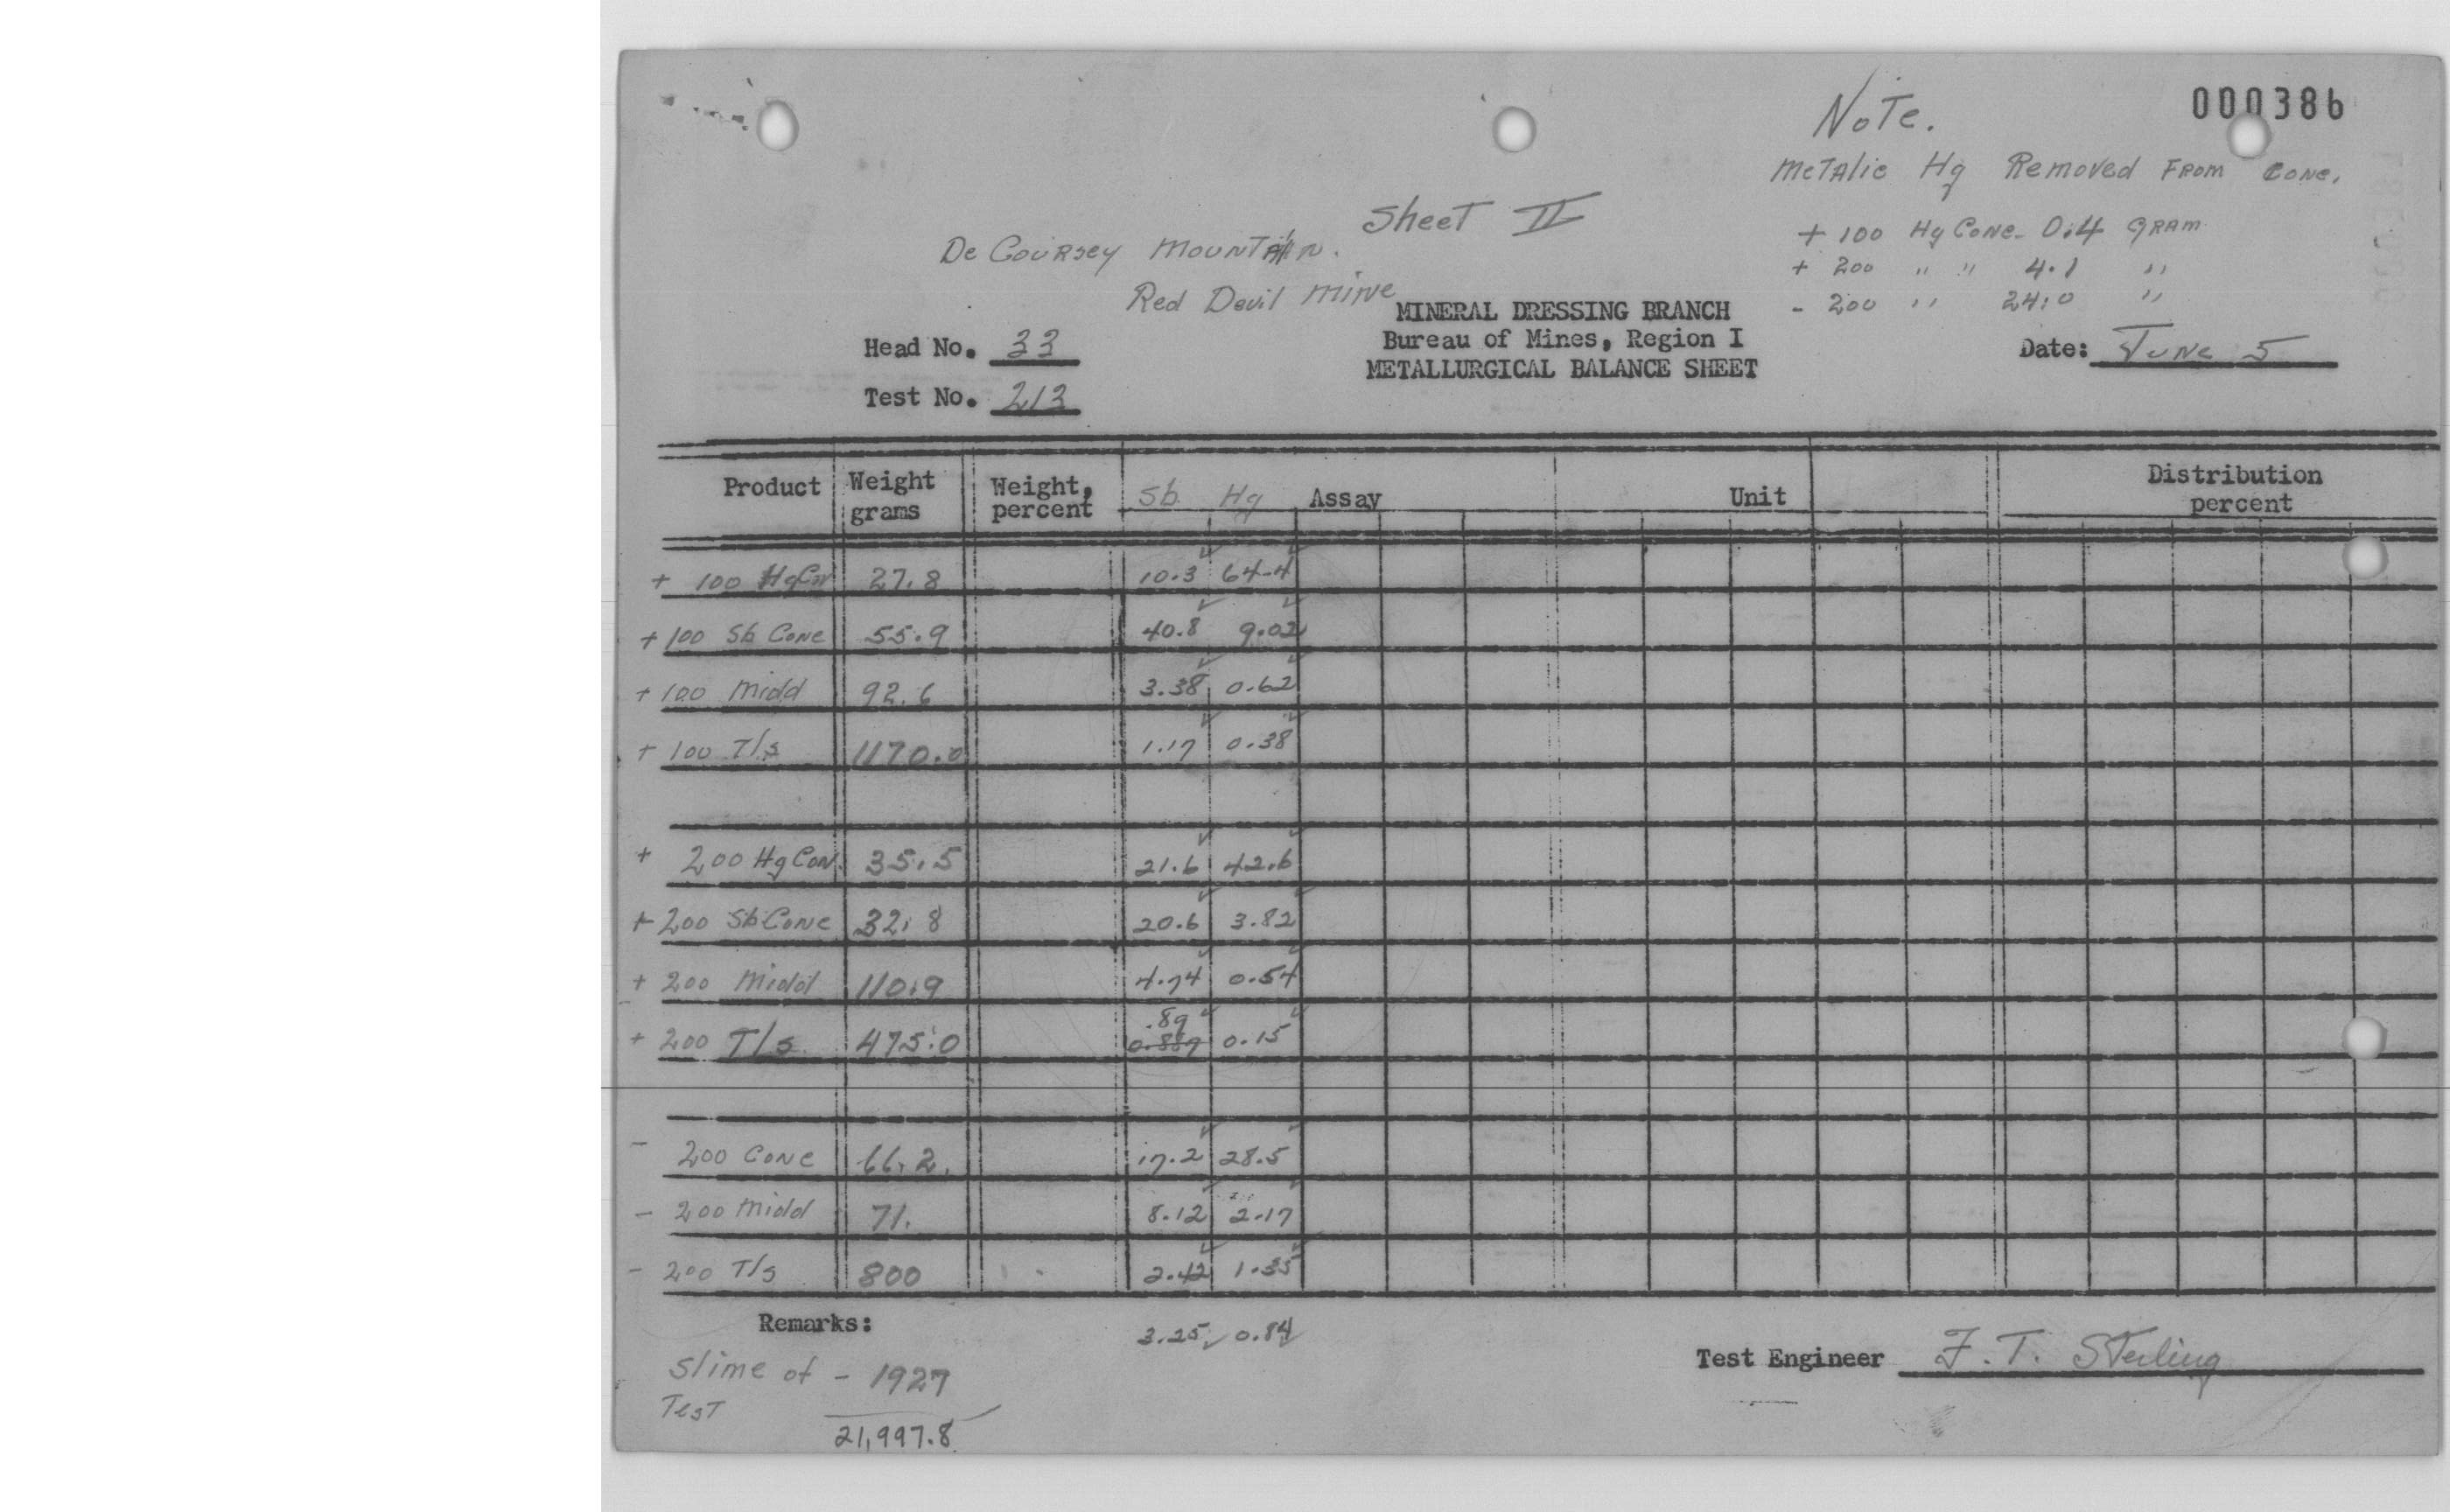 000386
Note.
Metalic Hg Removed From Conc.
Sheet II
+ 100 Hg Conc - 0.4 Gram
De Coursey Mountain.
+ 200 " " 4.1 "
Red Devil Mine
- 200 " 24.0 "
MINERAL DRESSING BRANCH
Head No. 33
Bureau of Mines, Region I
Date: June 5
METALLURGICAL BALANCE SHEET
Test No. 213
Product Weight grams Weight, percent Sb. Hg Assay Unit Distribution percent
+ 100 HgCn 27.8 10.3 64.4
+ 100 Sb Conc 55.9 40.8 9.02
+ 100 Midd 92.6 3.38 0.62
+ 100 T/s 1170.0 1.17 0.38
+ 200 Hg Con. 35.5 21.6 42.6
+ 200 Sb Conc 32.8 20.6 3.82
+ 200 Midd 110.9 4.74 0.54
.89
+ 200 T/s. 475.0 0.889 0.15
- 200 Conc 66.2. 17.2 28.5
- 200 Midd 71. 8.12 2.17
- 200 T/s 800 2.42 1.35
Remarks: 3.25 0.84
Slime of - 1927
Test
Test Engineer F. T. Sterling
21,997.8